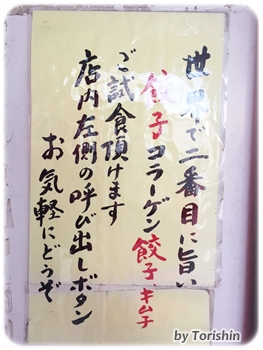 世界で二番目に旨い
餃子コラーゲン餃子、キムチ
ご試食頂けます
店内左側の呼び出しボタン
お気軽にどうぞ
by Torishin